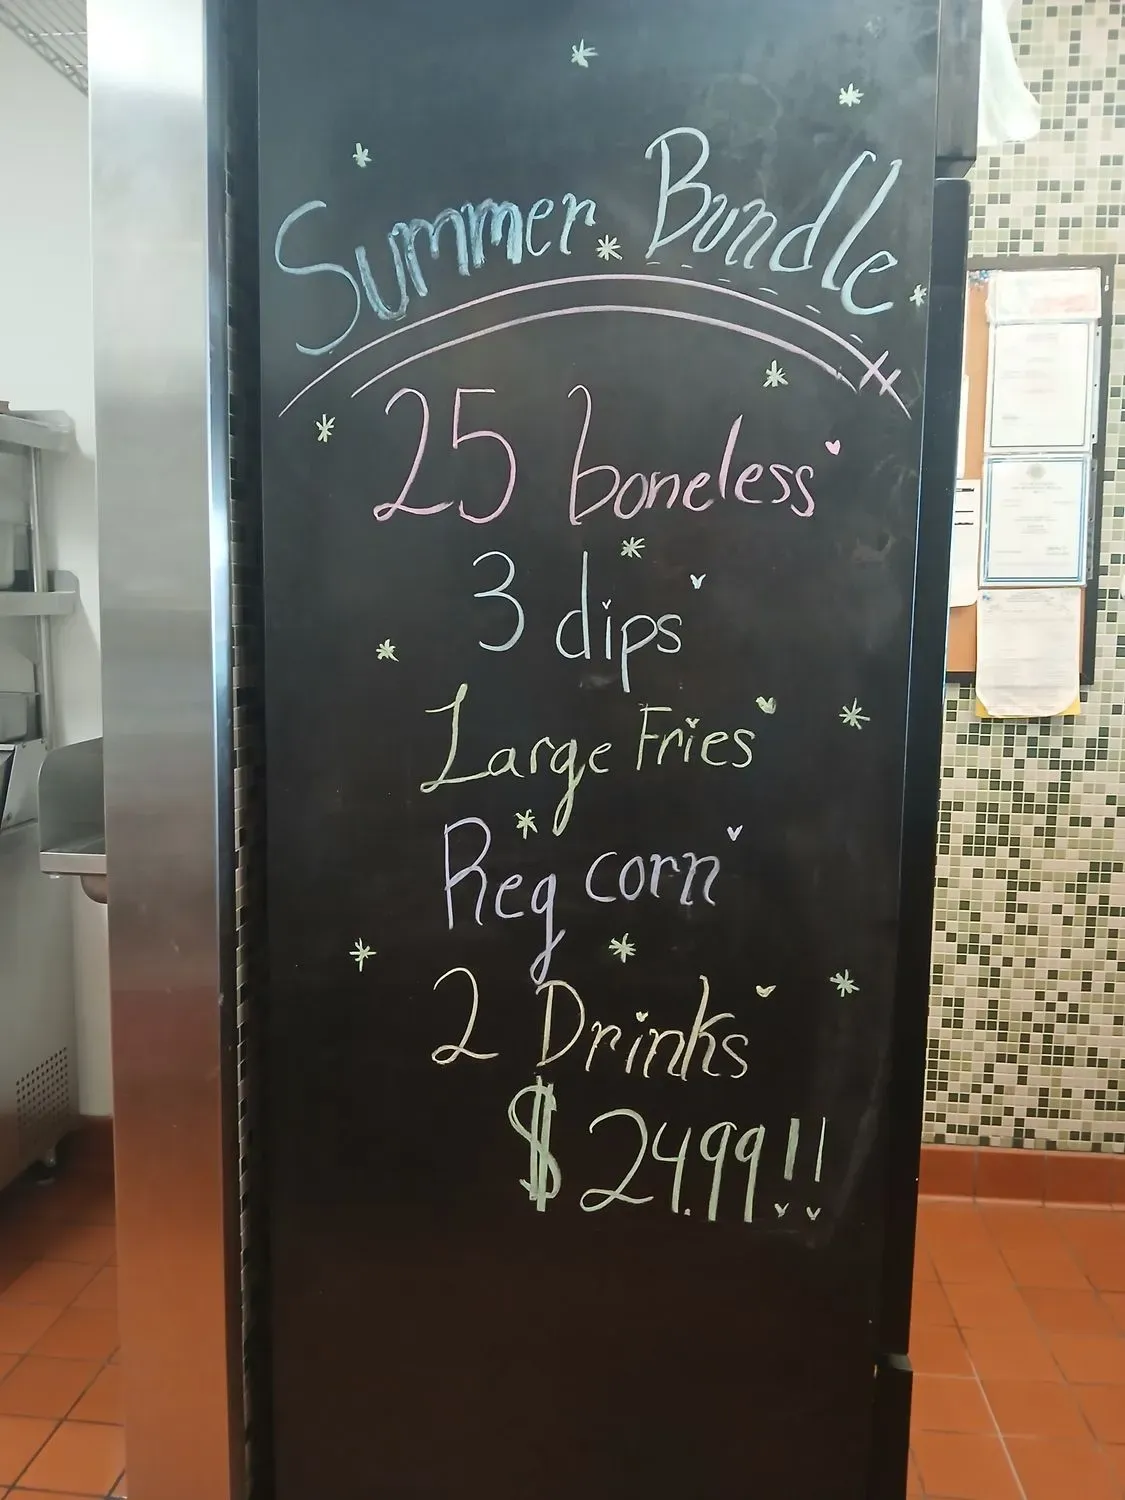 Summer Bundle
25 boneless
3 dips
Large Fries
Reg corn
2 Drinks
$24.99!!